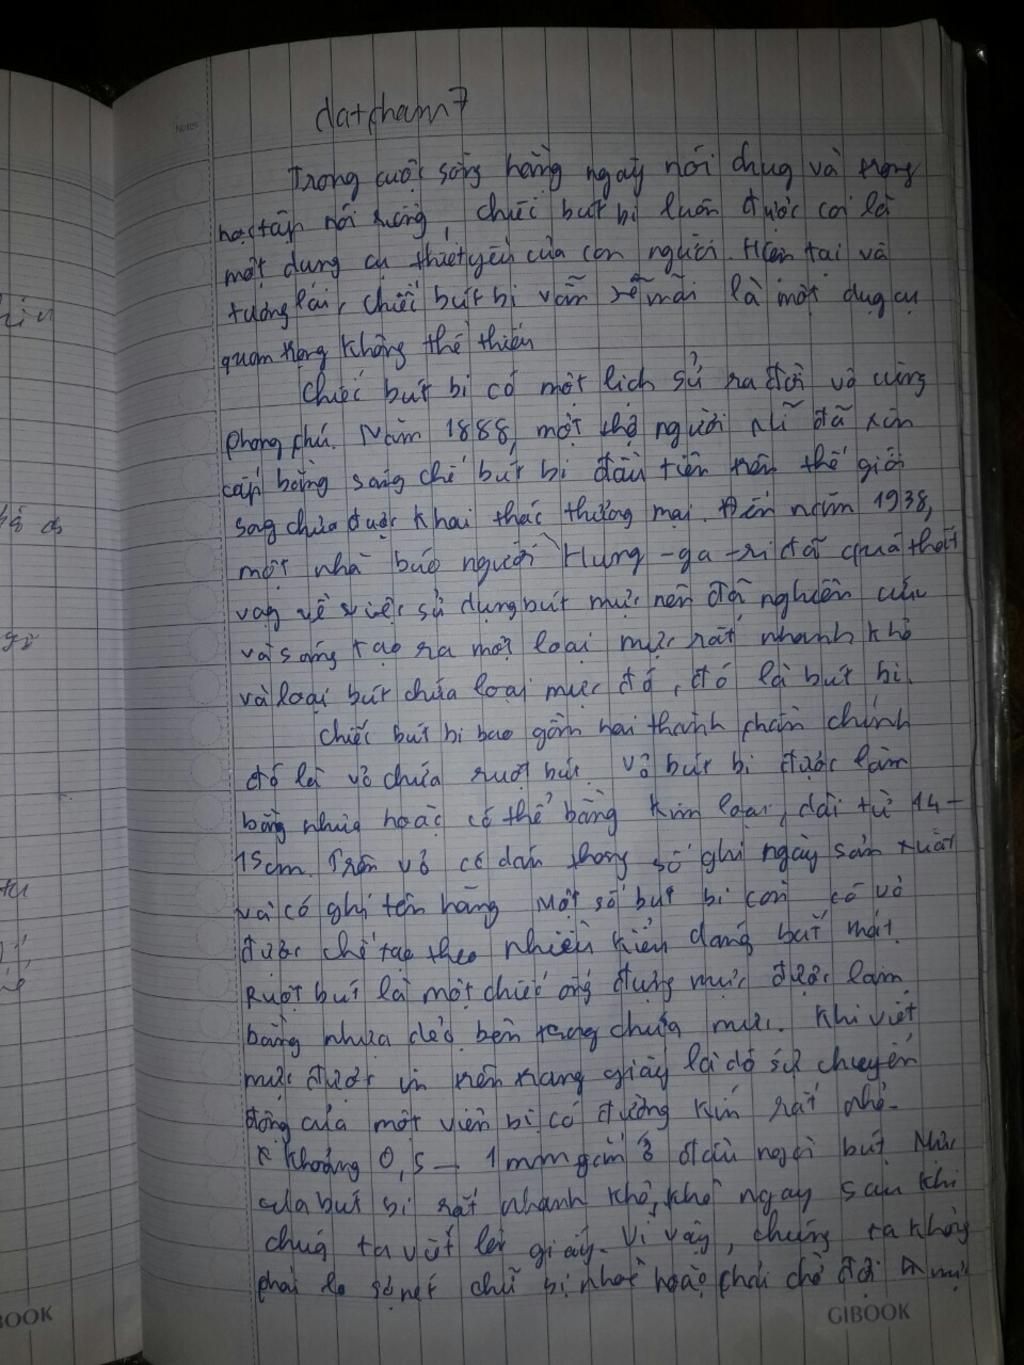 Notes
datpham7
Trong cuộc sống hằng ngày nói chug và trong
học tập nói riêng, chiếc bút bi luôn được coi là
một dung cụ thiết yếu của con người. Hiện tại và
tương lai, chiếc bút bi vẫn sẽ mãi là một dụg cụ
quan trọng không thể thiếu
Chiếc bút bi có một lịch sử ra đời vô cùng
phong phú. Năm 1888, một thợ người Mĩ đã xin
cấp bằng sáng chế bút bi đầu tiên trên thế giới
sog chưa được khai thác thương mại. Đến năm 1938,
một nhà báo người Hung-ga-ri đã quá thất
vọg về việc sử dụng bút mực nên đã nghiên cứu
và sáng tạo ra một loại mực rất nhanh khô
và loại bút chứa loại mực đó, đó là bút bi.
Chiếc bút bi bao gồm hai thành phần chính
đó là vỏ chứa ruột bút. Vỏ bút bi được làm
bằng nhựa hoặc có thể bằng kim loại, dài từ 14-
15cm. Trên vỏ có dán thông số ghi ngày sản xuất
và có ghi tên hãng Một số bút bi còn có vỏ
được chế tạo theo nhiều kiểu dáng bắt mắt.
Ruột bút là một chiếc ống đựng mực được làm
bằng nhựa dẻo bên trong chứa mực. Khi viết
mực được in trên trang giấy là do sự chuyển
động của một viên bi có đường kính rất nhỏ
khoảng 0,5 - 1mm gắn ở đầu ngòi bút Mực
của bút bi rất nhanh khô, khô ngay sau khi
chúg ta viết lên giấy. Vì vậy, chúng ta không
phải lo sợ nét chữ bị nhoè hoặc phải chờ đợi mực
BOOK
GIBOOK